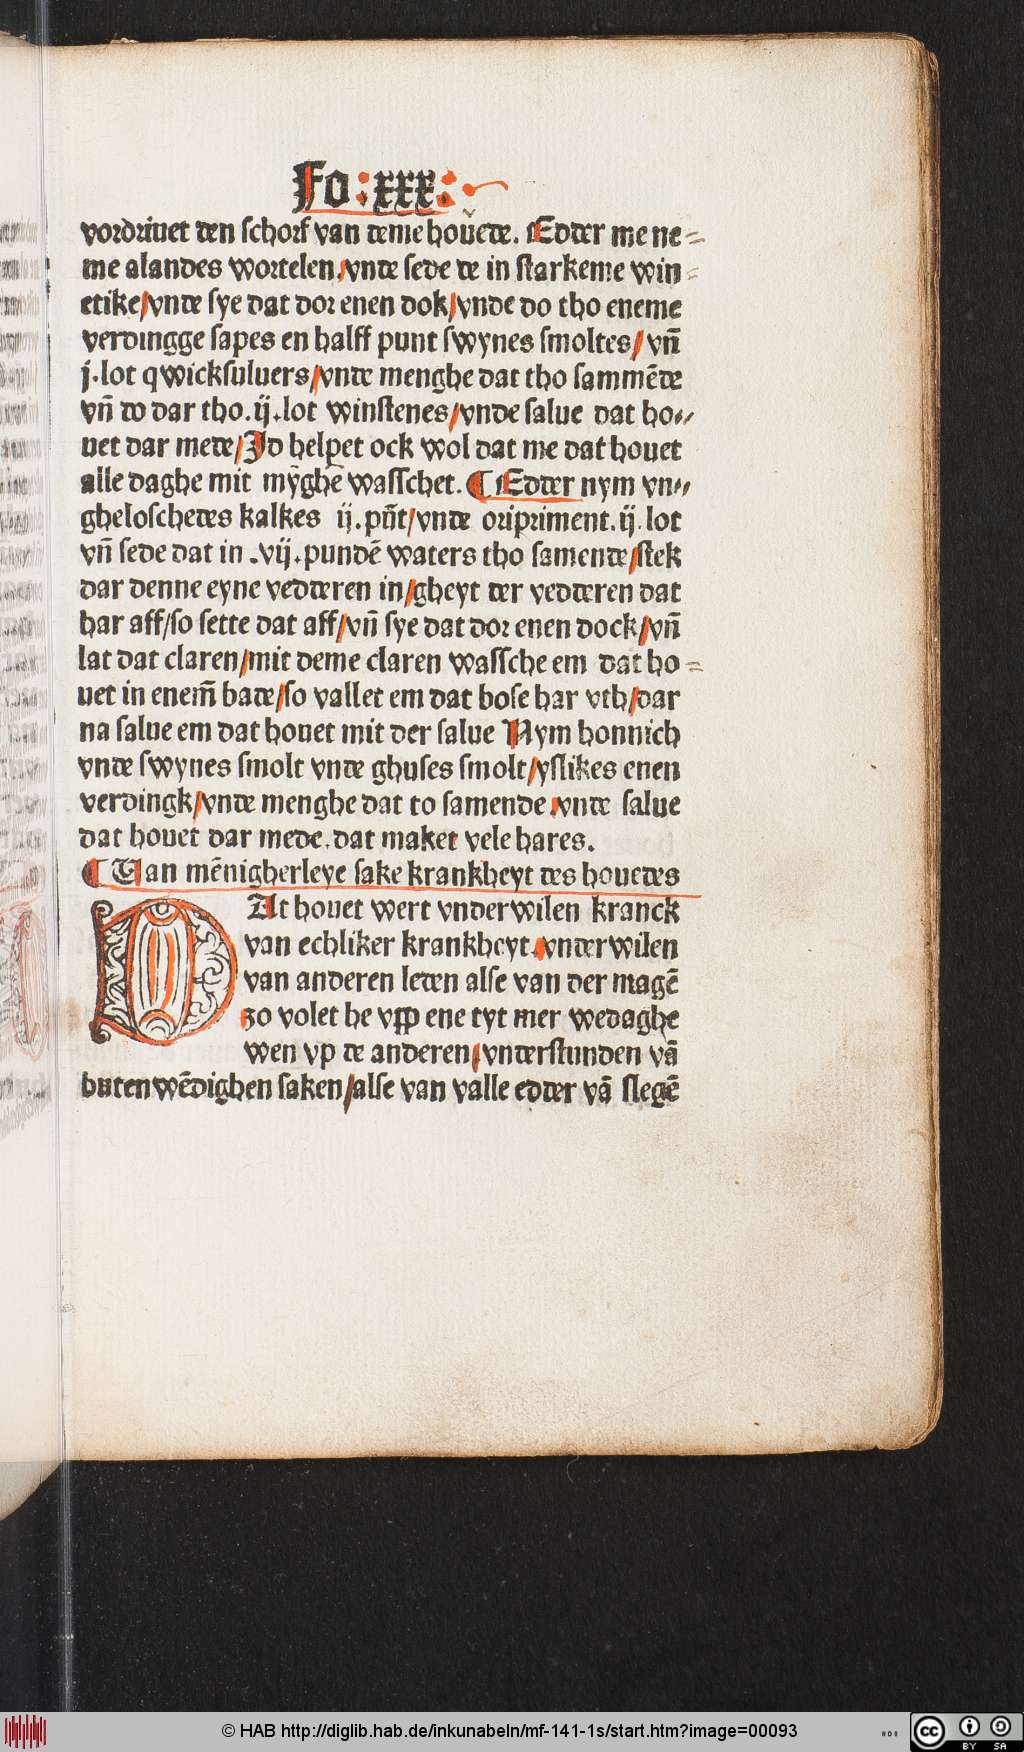 Fo : xxx :
vordriuet den schorf van deme houede. Edder me ne⸗
me alandes wortelen/vnde sede de in starkeme win⸗
etike/vnde sye dat dor enen dok/vnde do tho eneme
verdingge sapes en halff punt swynes smoltes/ vn̄
j.lot qwicksuluers/vnde menghe dat tho sammēde
vn̄ do dar tho.ij.lot winstenes/vnde salue dat ho⸗
uet dar mede/Id helpet ock wol dat me dat houet
alle daghe mit mȳghē wasschet. ¶ Edder nym vn⸗
gheloschedes kalkes ij.pūt/vnde oripriment.ij.lot
vn̄ sede dat in .vij.pundē waters tho samende/stek
dar denne eyne vedderen in/gheyt der vedderen dat
har aff/so sette dat aff/vn̄ sye dat dor enen dock/vn̄
lat dat claren/mit deme claren wassche em dat ho⸗
uet in enem̄ bade/so vallet em dat bose har vth/dar
na salue em dat houet mit der salue Nym honnich
vnde swynes smolt vnde ghuses smolt/yslikes enen
verdingk/vnde menghe dat to samende.vnde salue
dat houet dar mede.dat maket vele hares.
¶ Van mēnigherleye sake krankheyt des houedes
DAt houet wert vnderwilen kranck
van echliker krankheyt.vnderwilen
van anderen leden alse van der magē
zo volet he vpp ene tyt mer wedaghe
wen vp de anderen/vnderstunden vā
butenwēdighen saken/alse van valle edder vā slegē
© HAB http://diglib.hab.de/inkunabeln/mf-141-1s/start.htm?image=00093
cc BY SA